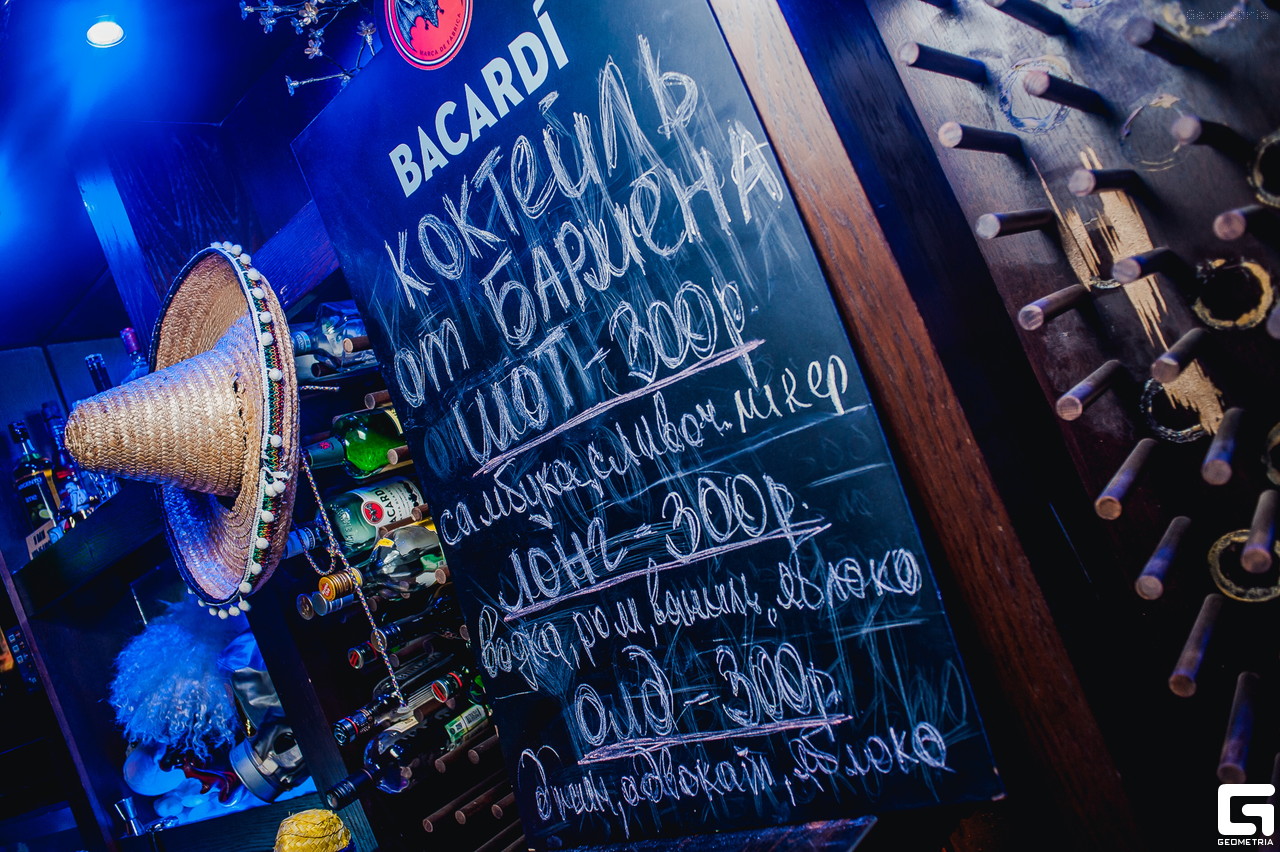 Geometria
MARCA DE FÁBRICA
BACARDÍ
КОКТЕЙЛЬ
от БАРМЕНА
ШОТ-300р.
самбука, сливоч. ликер
ЛОНГ-300р.
водка, ром, ваниль, яблоко
олд-300р.
джин, адвокат, яблоко
BACARDÍ
GEOMETRIA